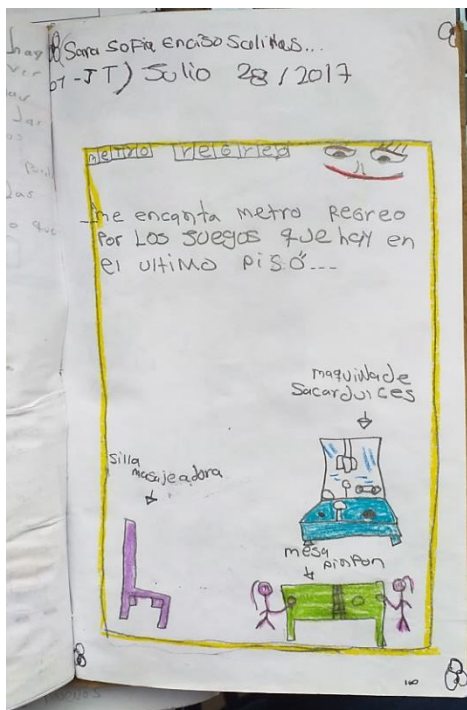 Sara Sofia enciso Salinas...
07-JT) Julio 28/2017
metro recreo
me encanta metro Recreo
Por Los Juegos que hay en
el ultimo piso...
maquina de
Sacar dulces
silla
masajeadora
mesa
pimpon
160